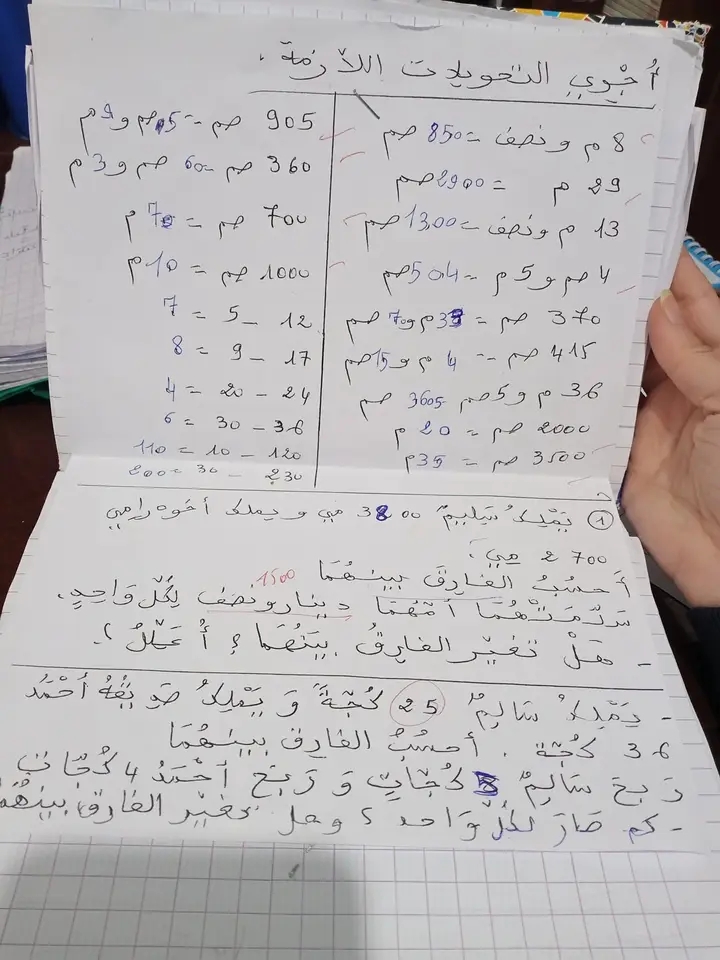 أُجْرِي التحويلات اللاّزمة.
8 م ونصف = 850 صم
29 م = 2900 صم
13 م ونصف = 1300 صم
4 صم و 5 م = 504 صم
370 صم = 3 م و 70 صم
415 صم = 4 م و 15 صم
36 م و 5 صم 3605 صم
2000 صم = 20 م
3500 صم = 35 م
905 صم = 5 صم و 9 م
360 صم = 60 صم و 3 م
700 صم = 7 م
1000 صم = 10 م
12 - 5 = 7
17 - 9 = 8
24 - 20 = 4
36 - 30 = 6
120 - 10 = 110
230 - 30 = 200
1 يَمْلِكُ سَلِيمٌ 3800 مي و يملك أخوه رامي
2700 مي.
أَحسُبُ الفَارِقَ بينهُمَا
1500
سَلَّمَتْهُمَا أمّهُمَا دينار ونصف لِكُلّ وَاحِدٍ.
- هَلْ تغيّر الفارِقُ بيَنَهُمَا؟ أُعَلّلُ؟.
- يَملِكُ سَالِمٌ 25 كُجّةً وَ يَمْلِكُ صَدِيقُهُ أَحْمَدُ
36 كُجّة. أحسُبُ الفارق بينهُمَا
رَبحَ سَالِمٌ 5 كُجّاتٍ وَ رَبحَ أحْمَدُ 4 كُجّات
- كم صَارَ لِكُلّ وَاحد؟ وهل تغيّر الفارق بينهُمَا